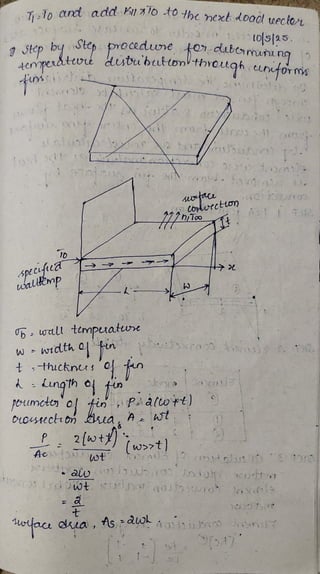 T1 = T0 and add K11 × T0 to the next load vector
10/5/25.
Step by Step procedure for determining
temperature distribution through uniforms
fins
surface
convection
h, T∞
t
T0
specified
wall temp
x
L
W
T0 = wall temperature
w = width of fin
t = thickness of fin
L = Length of fin
perimeter of fin, P = 2(w+t)
crossection area, A = wt
P/Ac = 2(w+t)/wt (w>>t)
= 2w/wt
= 2/t
surface area, As = 2wL